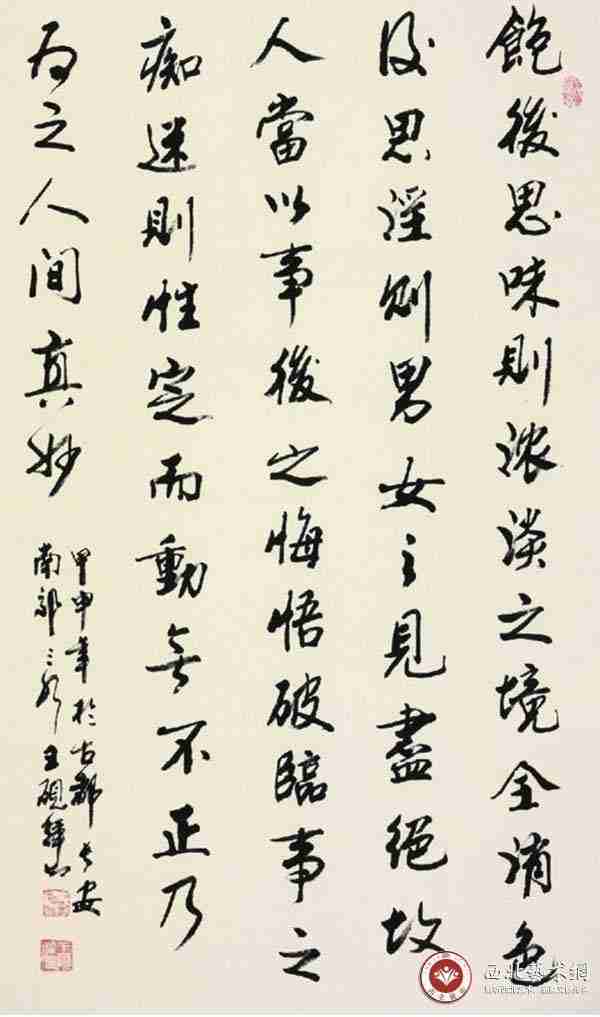 飽後思味則浓淡之境全消色
後思淫則男女之見盡絕故
人當以事後之悔悟破臨事之
痴迷則性定而動無不正乃
為之人间真妙
甲申年於古都長安
南郭之王硯
西北藝术網